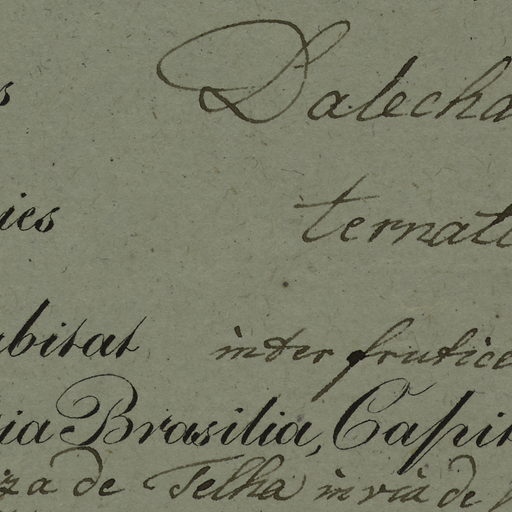 s Dalecha
ies ternat
bitat inter frutice
ia Brasilia, Capit
za de Telha in via de